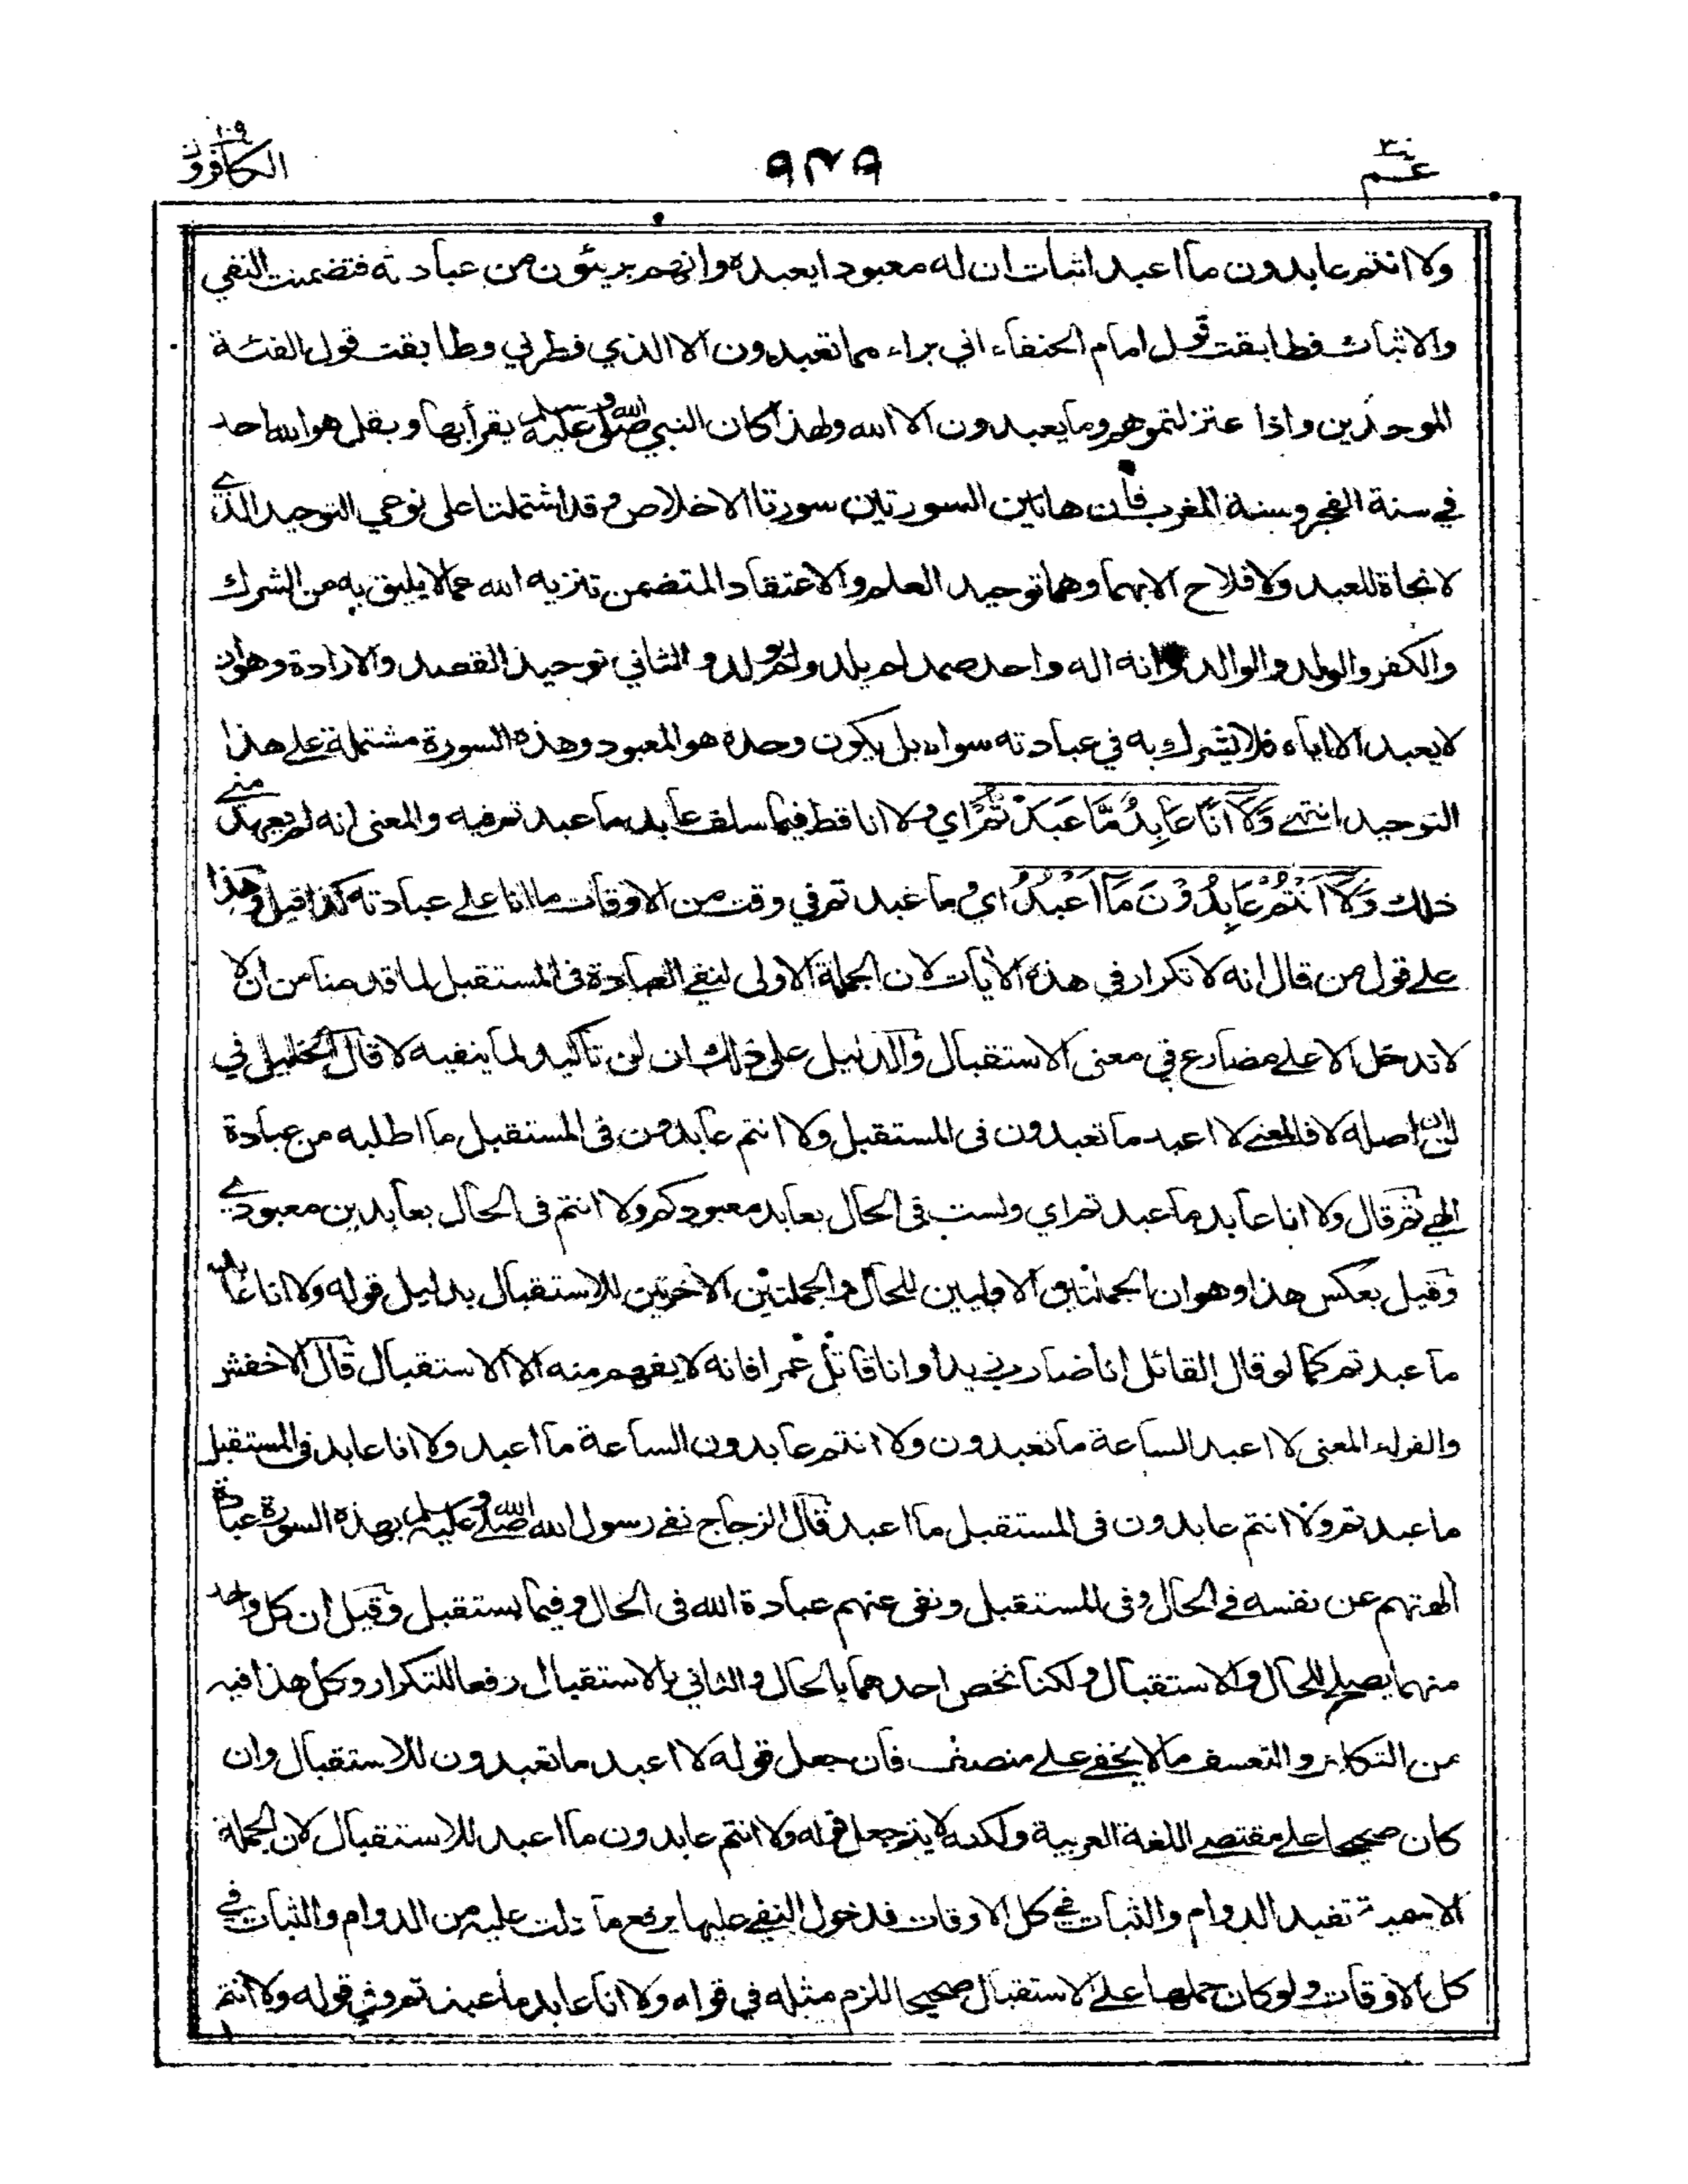 عم ٣٠
٩٢٩
الكافرون ١٠٩
ولا انتم عابدون ما اعبد اثبات ان له معبودا يعبده وانهم بريئون من عبادته فتضمنت النفي
والاثبات فطابقت قول امام الحنفاء اني براء مما تعبدون الا الذي فطرني وطابقت قول الفئة
الموحدين واذا عتزلتموهم وما يعبدون الا الله ولهذا كان النبي صلى الله عليه وسلم يقرأ بها وبقل هو الله احد
في سنة الفجر وسنة المغرب فان هاتين السورتين سورتا الاخلاص وقد اشتملتا على نوعي التوحيد الذي
لا نجاة للعبد ولا فلاح الا بهما وهما توحيد العلم والاعتقاد المتضمن تنزيه الله عما لا يليق به من الشرك
والكفر والولد والوالد وانه اله واحد صمد لم يلد ولم يولد والثاني توحيد القصد والارادة وهو ان
لا يعبد الا اياه فلا يشرك به في عبادته سواه بل يكون وحده هو المعبود وهذه السورة مشتملة على هذا
التوحيد انتهى وَلَآ اَنَا عَابِدٌ مَّا عَبَدْتُّمْ اي ولا انا قط فيما سلف عابد ما عبدتم فيه والمعنى انه لم يعهد مني
ذلك وَلَآ اَنْتُمْ عَابِدُوْنَ مَآ اَعْبُدُ اي وما عبدتم في وقت من الاوقات ما انا على عبادته كذا قيل وهذا
على قول من قال انه لا تكرار في هذه الآيات لان الجملة الاولى لنفي العبادة في المستقبل لما قدمنا من ان لا
لا تدخل الا على مضارع في معنى الاستقبال والدليل على ذلك ان لن تاكيد لما ينفيه لا قال الخليل في
لن ان اصله لا فالمعنى لا اعبد ما تعبدون في المستقبل ولا انتم عابدون في المستقبل ما اطلبه من عبادة
الهي ثم قال ولا انا عابد ما عبدتم اي ولست في الحال بعابد معبودكم ولا انتم في الحال بعابدين معبودي
وقيل بعكس هذا وهو ان الجملتين الاوليين للحال والجملتين الاخرتين للاستقبال بدليل قوله ولا انا عابد
ما عبدتم كما لو قال القائل انا ضارب زيدا وانا قاتل عمرا فانه لا يفهم منه الا الاستقبال قال الاخفش
والفراء المعنى لا اعبد الساعة ما تعبدون ولا انتم عابدون الساعة ما اعبد ولا انا عابد في المستقبل
ما عبدتم ولا انتم عابدون في المستقبل ما اعبد قال الزجاج نفى رسول الله صلى الله عليه وسلم بهذه السورة عبادة
الهتهم عن نفسه في الحال وفي المستقبل ونفى عنهم عبادة الله في الحال وفيما يستقبل وقيل ان كل واحد
منهما يصلح للحال والاستقبال ولكنا نخص احدهما بالحال والثاني بالاستقبال رفعا للتكرار وكل هذا فيه
من التكلف والتعسف ما لا يخفى على منصف فان جعل قوله لا اعبد ما تعبدون للاستقبال وان
كان صحيحا على مقتضى اللغة العربية ولكنه لا يتم جعل قوله ولا انتم عابدون ما اعبد للاستقبال لان الجملة
الاسمية تفيد الدوام والثبات في كل الاوقات فدخول النفي عليها يرفع ما دلت عليه من الدوام والثبات في
كل الاوقات ولو كان حملها على الاستقبال صحيحا للزم مثله في قوله ولا انا عابد ما عبدتم وفي قوله ولا انتم